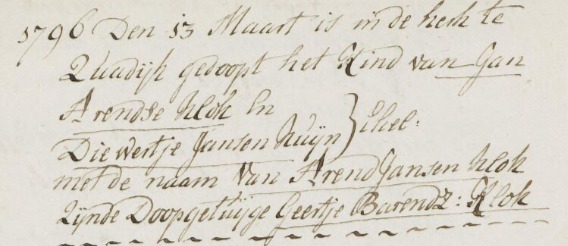 1796 Den 13 Maart is in de kerk te
Quadijk gedoopt het Kind van Jan
Arendse Klok En
Diewertje Jansen Kuijn } Ehel:
met de naam Van Arend Jansen Klok
Zijnde Doopgetuijge Geertje Barendz: Klok